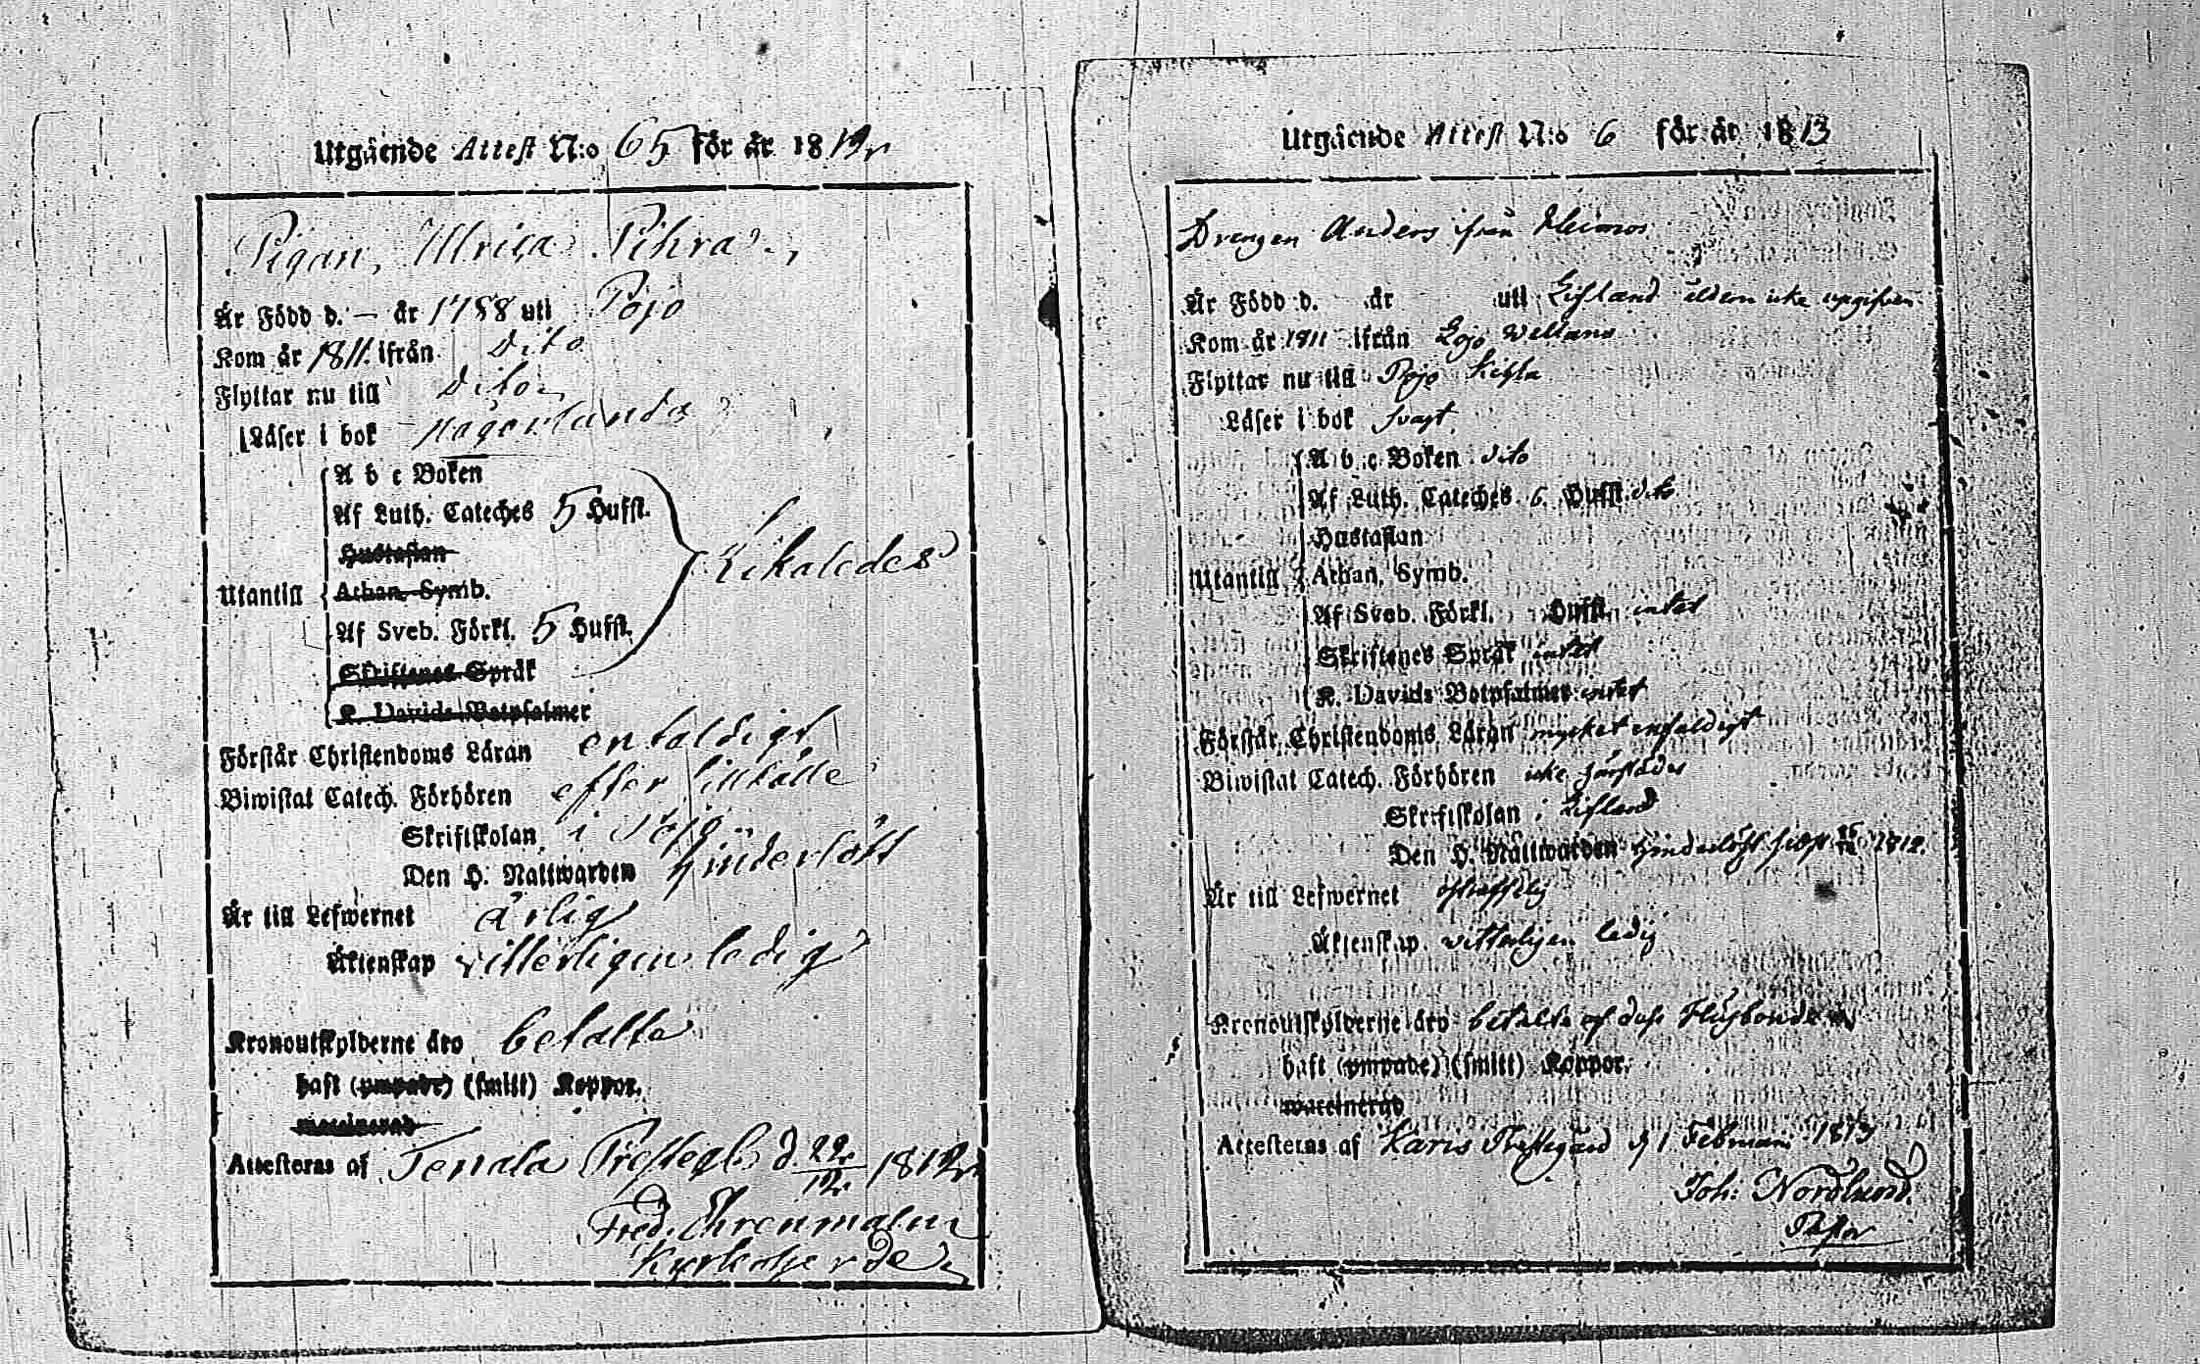 Utgående Attest N:o 65 för år 1812
Pigan, Ulrica Pihra
Är Född d. — år 1788 uti Pojo
Kom år 1811. ifrån Dito
Flyttar nu till Dito
Läser i bok någorlunda
A b c Boken
Af Luth. Cateches 5 Hufst.
Hustaflan
Utantill Athan. Symb. Likaledes
Af Sveb. Förkl. 5 Hufst.
Skriftenes Språk
K. Davids Botpsalmer
Förstår Christendoms Läran enfaldigt
Biwistat Catech. Förhören efter
Skriftskolan i Pojo
Den H. Nattwarden hinderlöst
Är till Lefwernet ärlig
Äktenskap witterligen ledig
Kronoutskylderne äro betalte
haft (ympade) (smitt) Koppor.
waccinerad
Attesteras af Tenala Prestegd. d. 22/12 1812
Fred. Ehrenmalm
Kyrkoherde
Utgående Attest N:o 6 för år 1813
Drengen Anders ifrån Heimos
Är Född d. år uti Lifland åldern icke upgifven
Kom år 1811 ifrån Lojo
Flyttar nu till Pojo
Läser i bok svagt
A b c Boken dito
Af Luth. Cateches 6. Hufst. dito
Hustaflan
Utantill Athan. Symb.
Af Sveb. Förkl. Hufst. intet
Skriftenes Språk intet
K. Davids Botpsalmer intet
Förstår Christendoms Läran mycket enfaldigt
Biwistat Catech. Förhören icke härstädes
Skriftskolan i Lifland
Den H. Nattwarden hinderlöst 1812.
Är till Lefwernet ostrafflig
Äktenskap vitterligen ledig
Kronoutskylderne äro betalte af dess Husbonde
haft (ympade) (smitt) Koppor.
waccinerad
Attesteras af Karis Prestegård d 1 Februari 1813
Joh: Nordlund.
Pastor